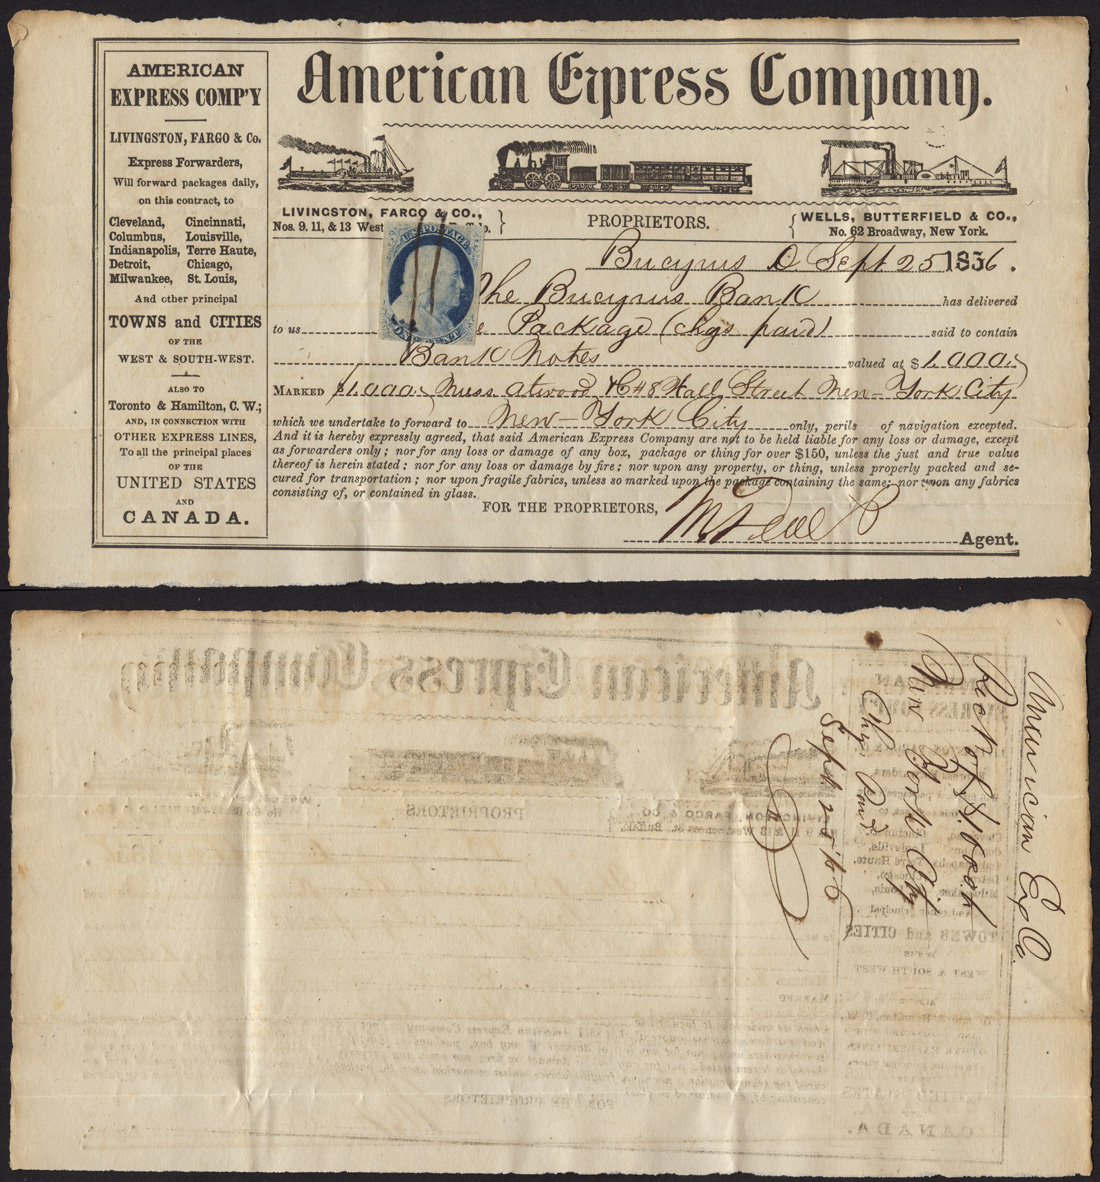 AMERICAN
EXPRESS COMP'Y
LIVINGSTON, FARGO & Co.
Express Forwarders,
Will forward packages daily,
on this contract, to
Cleveland, Cincinnati,
Columbus, Louisville,
Indianapolis, Terre Haute,
Detroit, Chicago,
Milwaukee, St. Louis,
And other principal
TOWNS and CITIES
OF THE
WEST & SOUTH-WEST.
ALSO TO
Toronto & Hamilton, C. W.;
AND, IN CONNECTION WITH
OTHER EXPRESS LINES,
To all the principal places
OF THE
UNITED STATES
AND
CANADA.
American Express Company.
LIVINGSTON, FARGO & CO.,
Nos. 9, 11, & 13 West
PROPRIETORS.
WELLS, BUTTERFIELD & CO.,
No. 62 Broadway, New York.
U.S. POSTAGE
ONE CENT
Bucyrus O Sept 25 1856.
The Bucyrus Bank has delivered
to us Package (chgs paid) said to contain
Bank Notes valued at $1,000.
MARKED $1,000. Atwood & Co 48 Wall Street New-York City
which we undertake to forward to New-York City only, perils of navigation excepted.
And it is hereby expressly agreed, that said American Express Company are not to be held liable for any loss or damage, except
as forwarders only; nor for any loss or damage of any box, package or thing for over $150, unless the just and true value
thereof is herein stated; nor for any loss or damage by fire; nor upon any property, or thing, unless properly packed and se-
cured for transportation; nor upon fragile fabrics, unless so marked upon the package containing the same; nor upon any fabrics
consisting of, or contained in glass.
FOR THE PROPRIETORS,
Agent.
American Ex Co.
Rect of $1000
New York City
Chgs Paid
Sept 25 '56